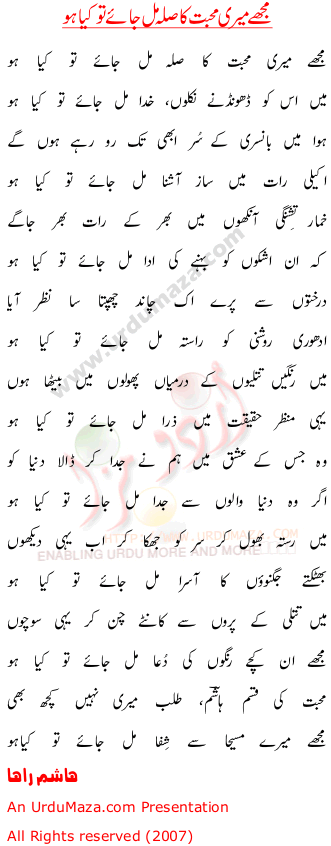 مجھے میری محبت کا صلہ مل جائے تو کیا ہو
مجھے میری محبت کا صلہ مل جائے تو کیا ہو
میں اس کو ڈھونڈنے نکلوں، خدا مل جائے تو کیا ہو
ہوا میں بانسری کے سُر ابھی تک رو رہے ہوں گے
اکیلی رات میں ساز آشنا مل جائے تو کیا ہو
خمار تِشنگی آنکھوں میں بھر کے رات بھر جاگے
کہ ان اشکوں کو بہنے کی ادا مل جائے تو کیا ہو
درختوں سے پرے اک چاند چھپتا سا نظر آیا
ادھوری روشنی کو راستہ مل جائے تو کیا ہو
میں رنگیں تتلیوں کے درمیاں پھولوں میں بیٹھا ہوں
یہی منظر حقیقت میں ذرا مل جائے تو کیا ہو
وہ جس کے عشق میں ہم نے جدا کر ڈالا دنیا کو
اگر وہ دنیا والوں سے جدا مل جائے تو کیا ہو
میں رستہ بھول کر سر کو جھکا کر اب یہی دیکھوں
بھٹکتے جگنوؤں کا آسرا مل جائے تو کیا ہو
میں تتلی کے پروں سے کانٹے چن کر یہی سوچوں
مجھے ان کچے رنگوں کی دُعا مل جائے تو کیا ہو
محبت کی قسم ہاشم، طلب میری نہیں کچھ بھی
مجھے میرے مسیحا سے شِفا مل جائے تو کیاہو
هاشم راها
An UrduMaza.com Presentation
All Rights reserved (2007)
www.urdumaza.com
اردو مزا
HTTP://WWW.URDUMAZA.COM
ENABLING URDU MORE AND MORE